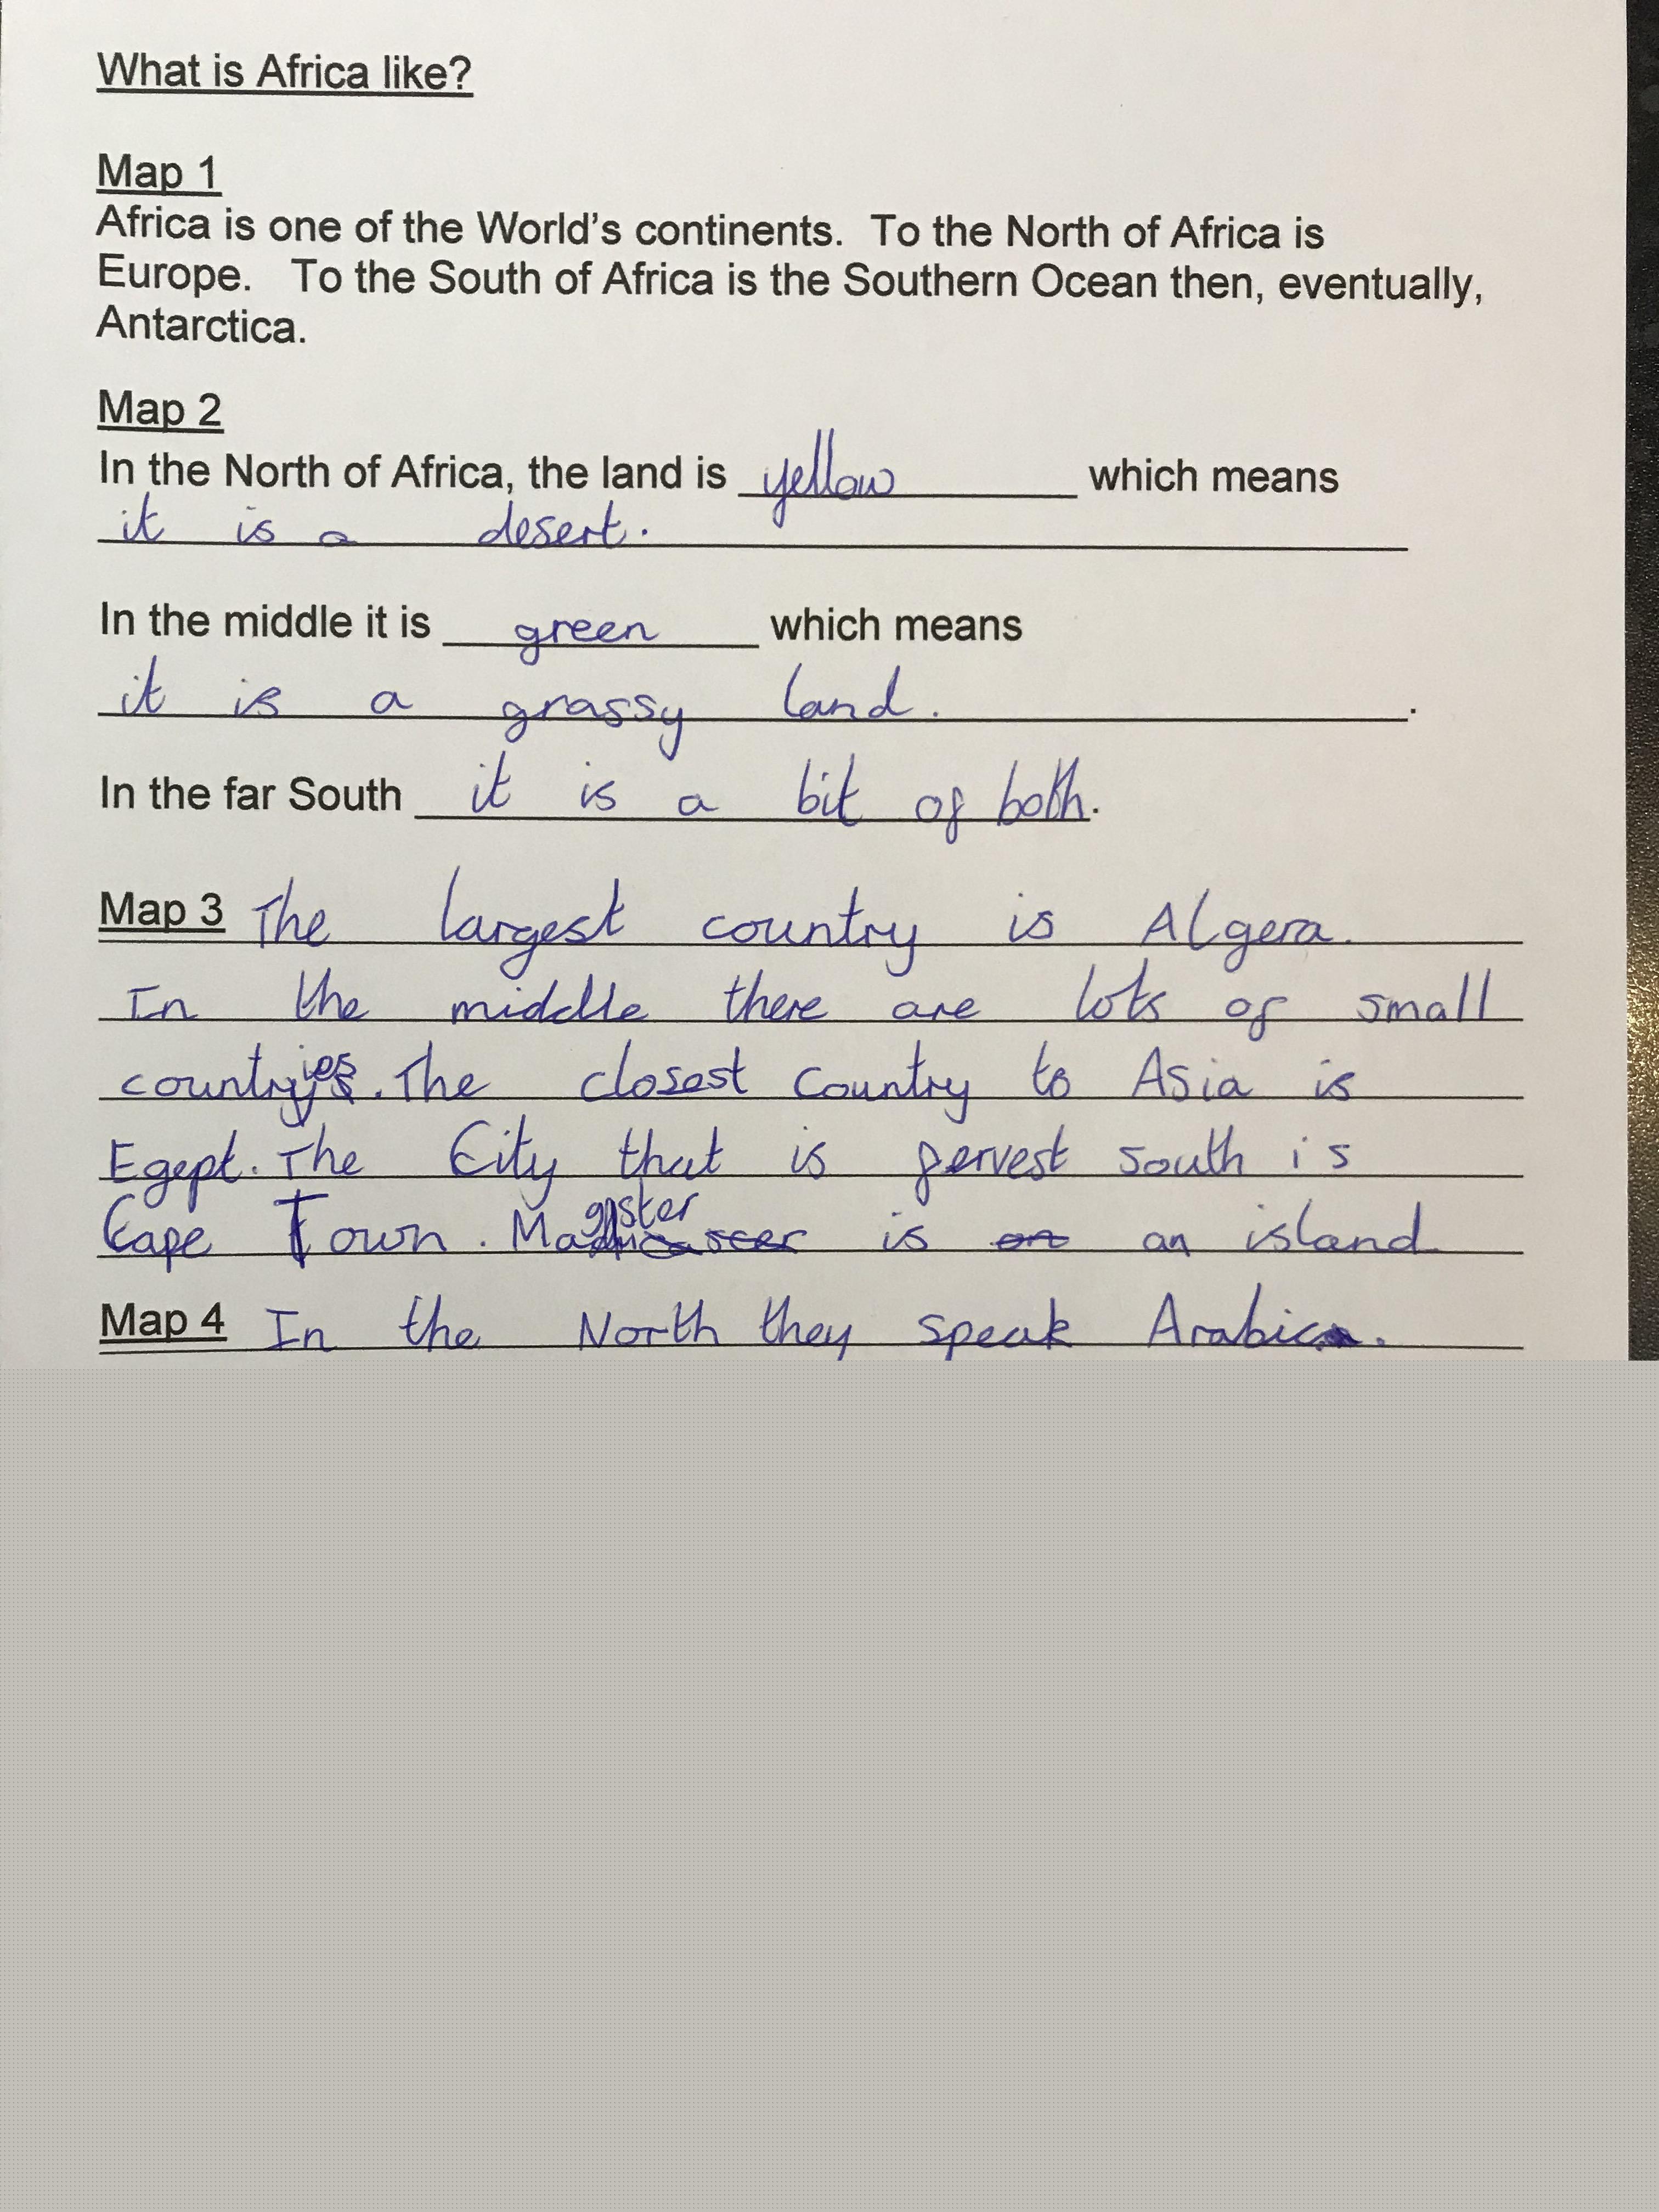 What is Africa like?
Map 1
Africa is one of the World's continents. To the North of Africa is
Europe. To the South of Africa is the Southern Ocean then, eventually,
Antarctica.
Map 2
In the North of Africa, the land is yellow which means
it is a desert.
In the middle it is green which means
it is a grassy land.
In the far South it is a bit of both.
Map 3 The largest country is Algera.
In the middle there are lots of small
countries. The closest country to Asia is
Egept. The City that is fervest south is
Cape Town. Madgaster is an island
Map 4 In the North they speak Arabic.